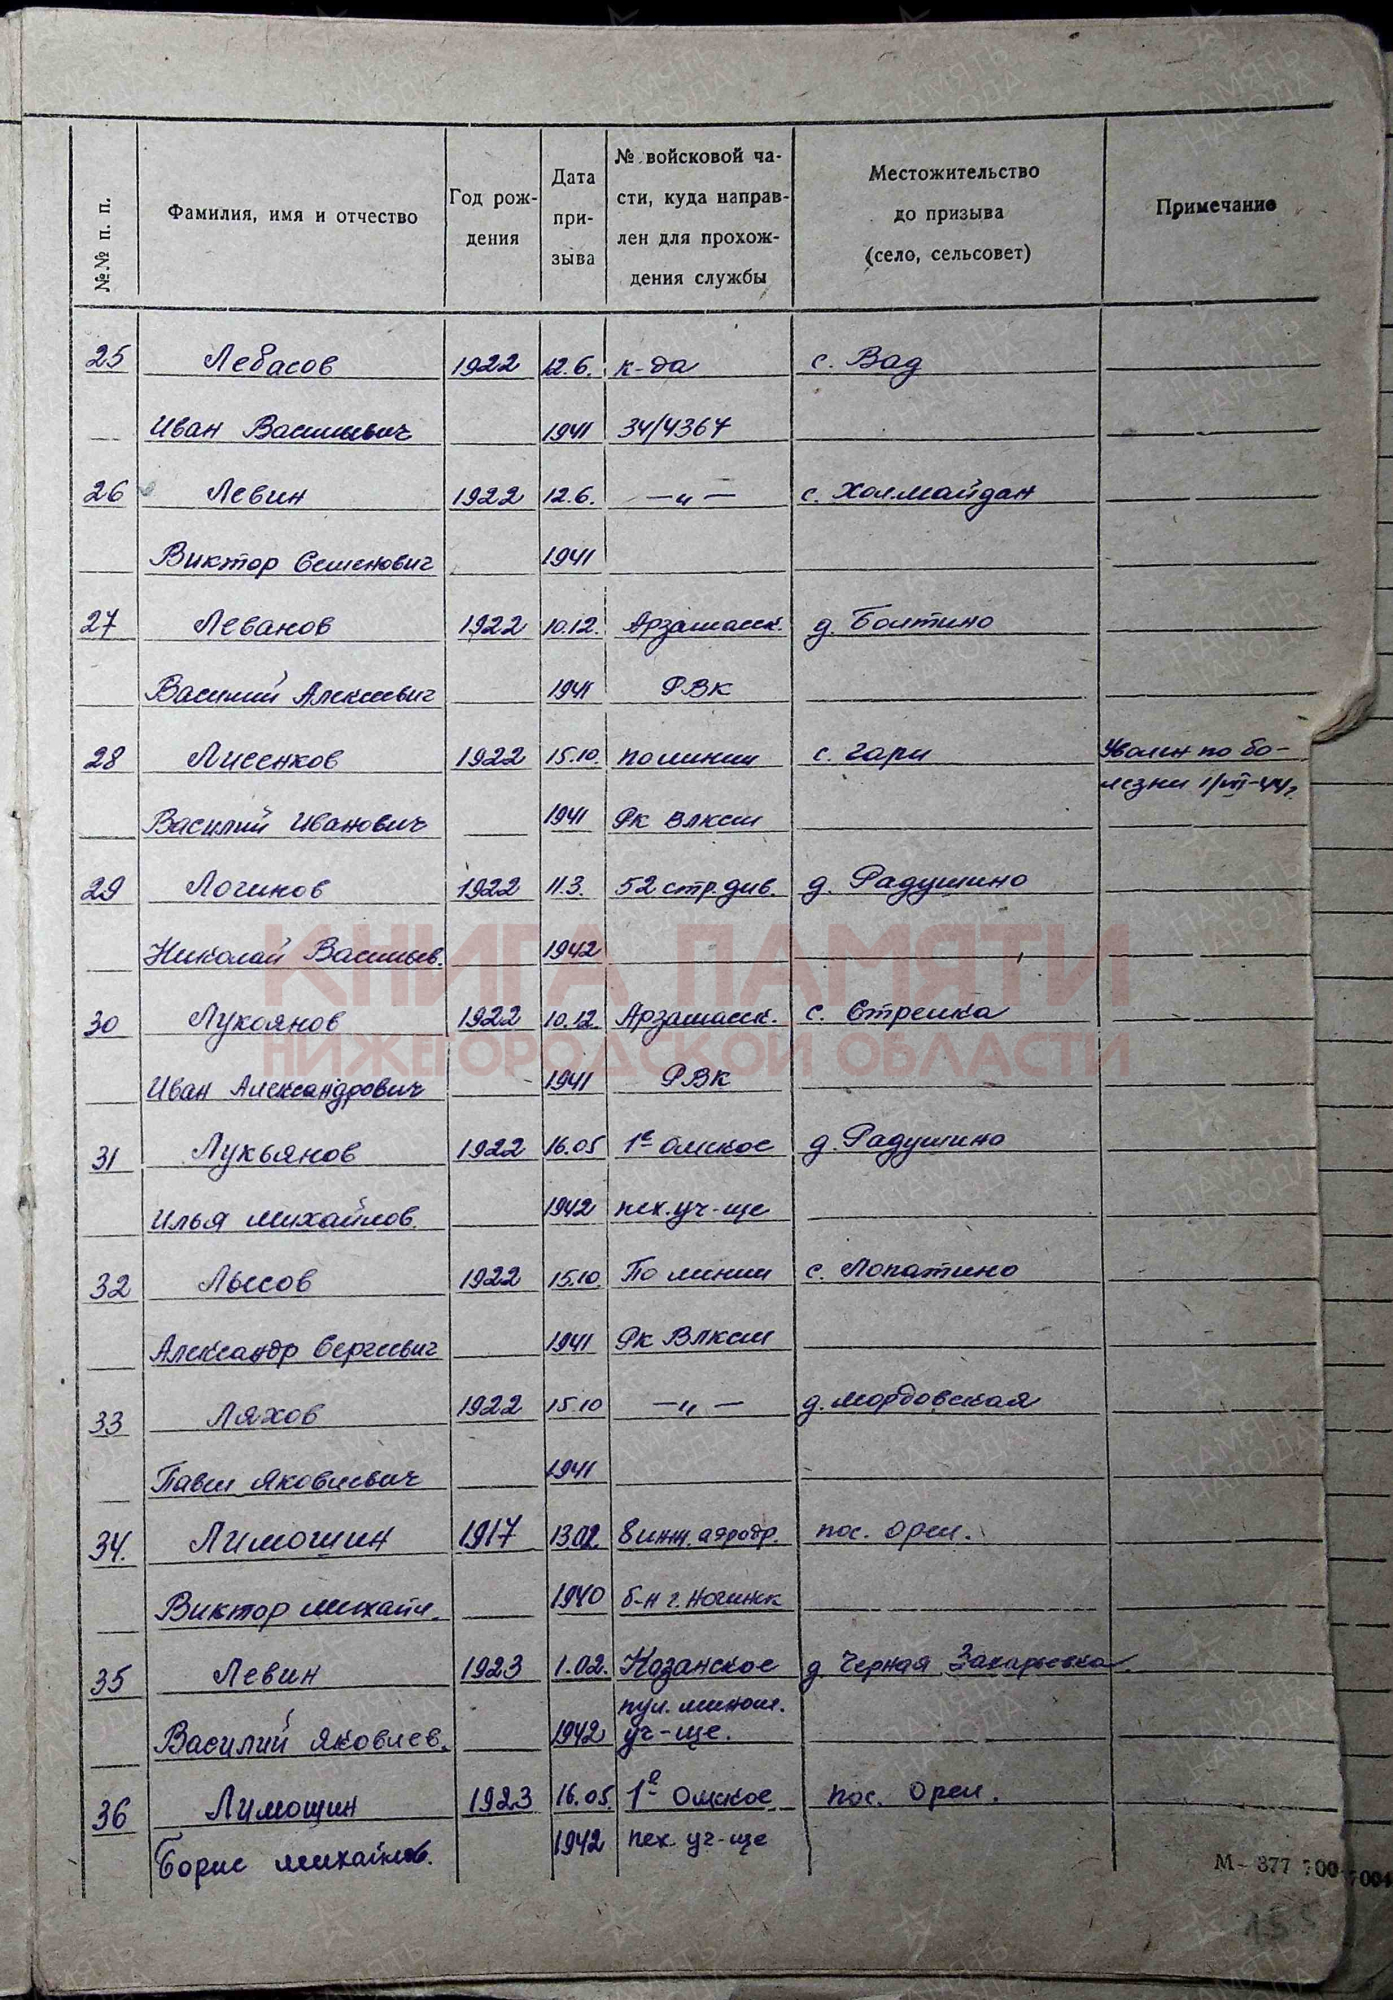 №№ п. п.
Фамилия, имя и отчество
Год рож-
дения
Дата
при-
зыва
№ войсковой ча-
сти, куда направ-
лен для прохож-
дения службы
Местожительство
до призыва
(село, сельсовет)
Примечание
25 Лебасов 1922 12.6. к-да с. Вад
Иван Васильевич 1941 34/4367
26 Левин 1922 12.6. —„— с. Холмайдан
Виктор Семенович 1941
27 Леванов 1922 10.12. Арзамасск. д. Болтино
Василий Алексеевич 1941 РВК
28 Лисенков 1922 15.10. по линии с. Гари Уволен по бо-
лезни 1/VII-44г.
Василий Иванович 1941 Рк ВЛКСМ
29 Логинов 1922 11.3. 52 стр. див. д. Радушино
Николай Васильев. 1942
30 Лукоянов 1922 10.12. Арзамасск. с. Стрелка
Иван Александрович 1941 РВК
31 Лукьянов 1922 16.05 1е Омское д. Радушино
Илья Михайлов. 1942 пех. уч-ще
32 Лысов 1922 15.10. По линии с. Лопатино
Александр Сергеевич 1941 Рк ВЛКСМ
33 Ляхов 1922 15.10 —„— д. Мордовская
Павел Яковлевич 1941
34. Лимошин 1917 13.02. 8 инж. аэродр. пос. Орел.
Виктор Михайл. 1940 б-н г. Ногинск
35 Левин 1923 1.02. Казанское д Черная Захарьевка.
пул. мином.
Василий Яковлев. 1942 уч-ще.
36 Лимошин 1923 16.05. 1е Омское пос. Орел.
Борис Михайлов. 1942 пех. уч-ще
КНИГА ПАМЯТИ
НИЖЕГОРОДСКОЙ ОБЛАСТИ
М-377 700
7004
155